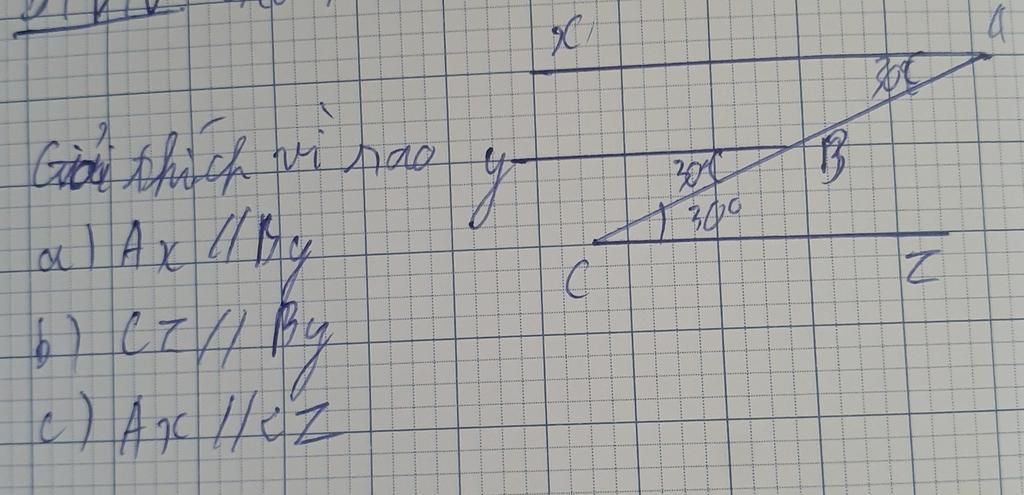 x
A
30°
Giải thích vì nao
y
30°
B
30°
a) Ax // By
C
z
b) Cz // By
c) Ax // cz